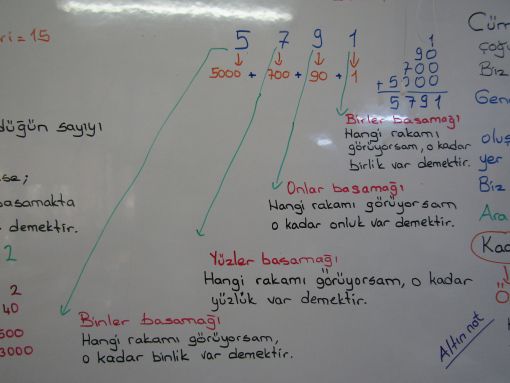 ri = 15
5 7 9 1
5000 + 700 + 90 + 1
1
90
700
+ 5000
5791
Birler basamağı
Hangi rakamı
görüyorsam, o kadar
birlik var demektir.
Onlar basamağı
Hangi rakamı görüyorsam
o kadar onluk var demektir.
Yüzler basamağı
Hangi rakamı görüyorsam, o kadar
yüzlük var demektir.
Binler basamağı
Hangi rakamı görüyorsam,
o kadar binlik var demektir.
düğün sayıyı
se;
basamakta
demektir.
2
2
40
500
3000
Cüm
çoğu
Biz
Gene
oluş
yer
Biz
Ara
Ka
Ö
Altın not